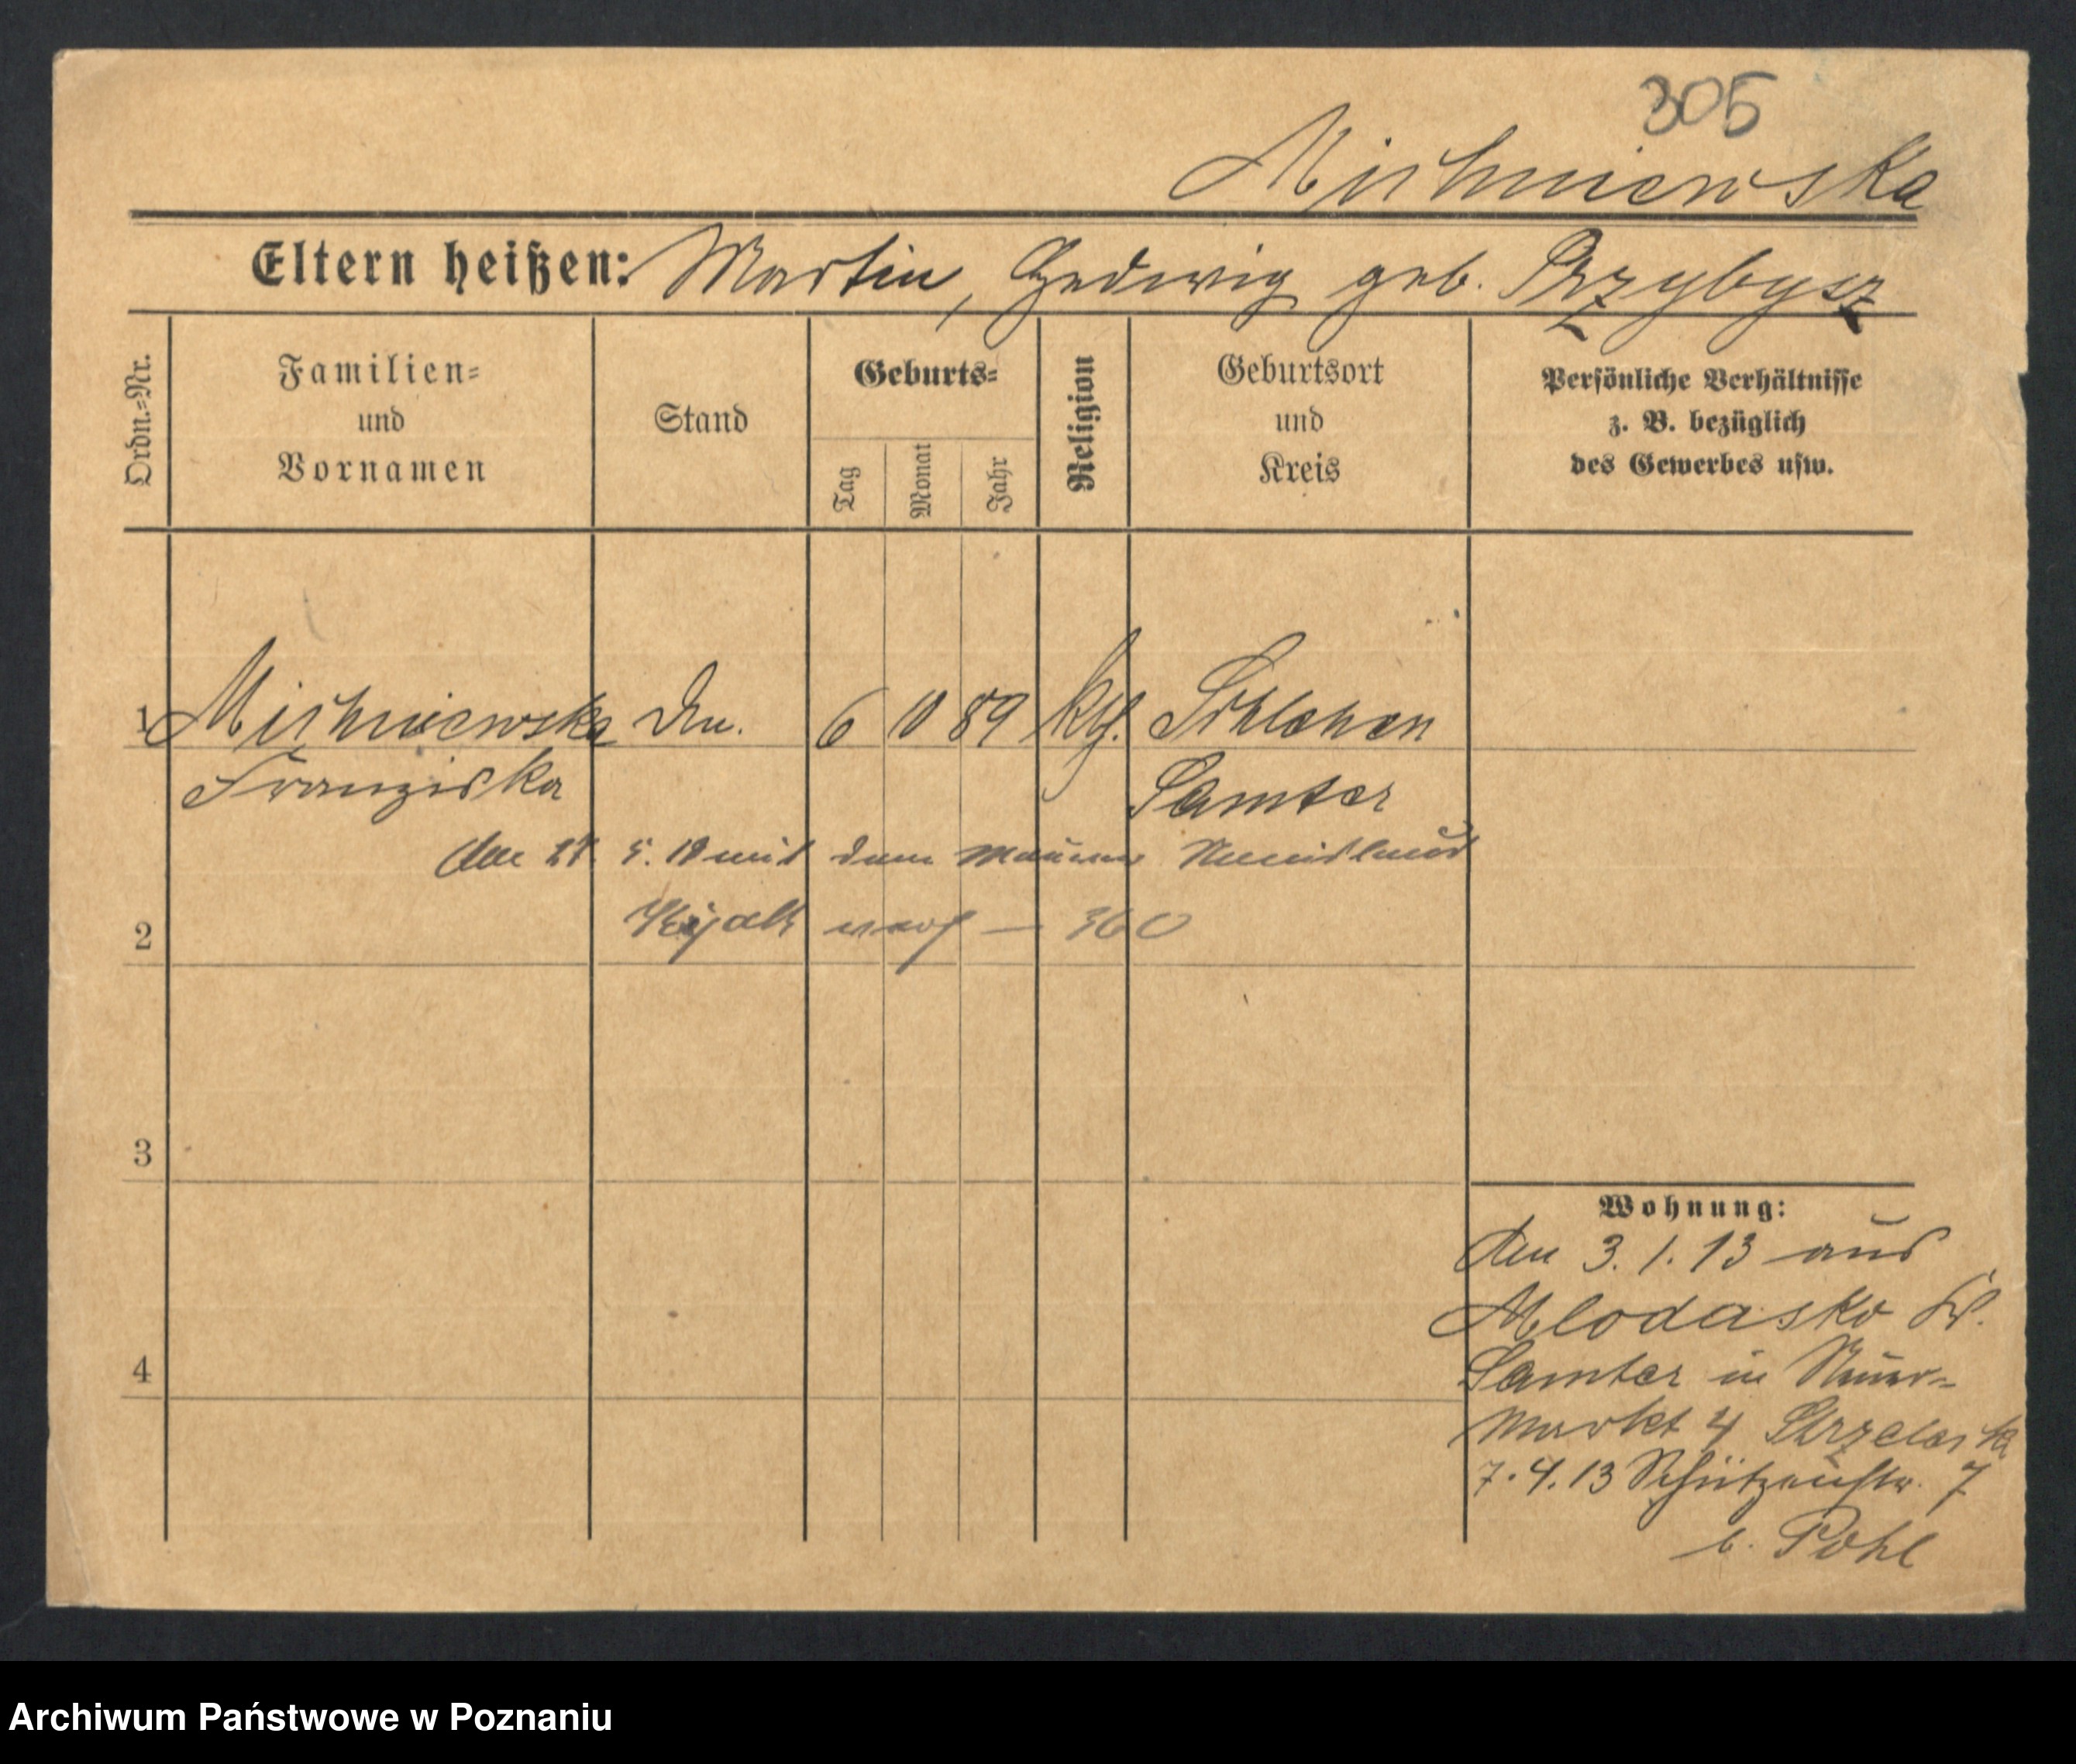 305
Mischniewska
Eltern heißen: Martin, Hedwig geb. Przybysz
Ordn.-Nr.
Familien-
und
Vornamen
Stand
Geburts-
Tag
Monat
Jahr
Religion
Geburtsort
und
Kreis
Persönliche Verhältnisse
z. B. bezüglich
des Gewerbes usw.
1 Mischniewska 6 10 89 kth.
Franziska Samter
den 5. 18 mit dem Maurer
2 verh — 360
3
4
Wohnung:
den 3. 1. 13 aus
Mlodasko Kr.
Samter in Neuer-
markt 4
7. 4. 13 Schützenstr. 7
b. Pohl
Archiwum Państwowe w Poznaniu